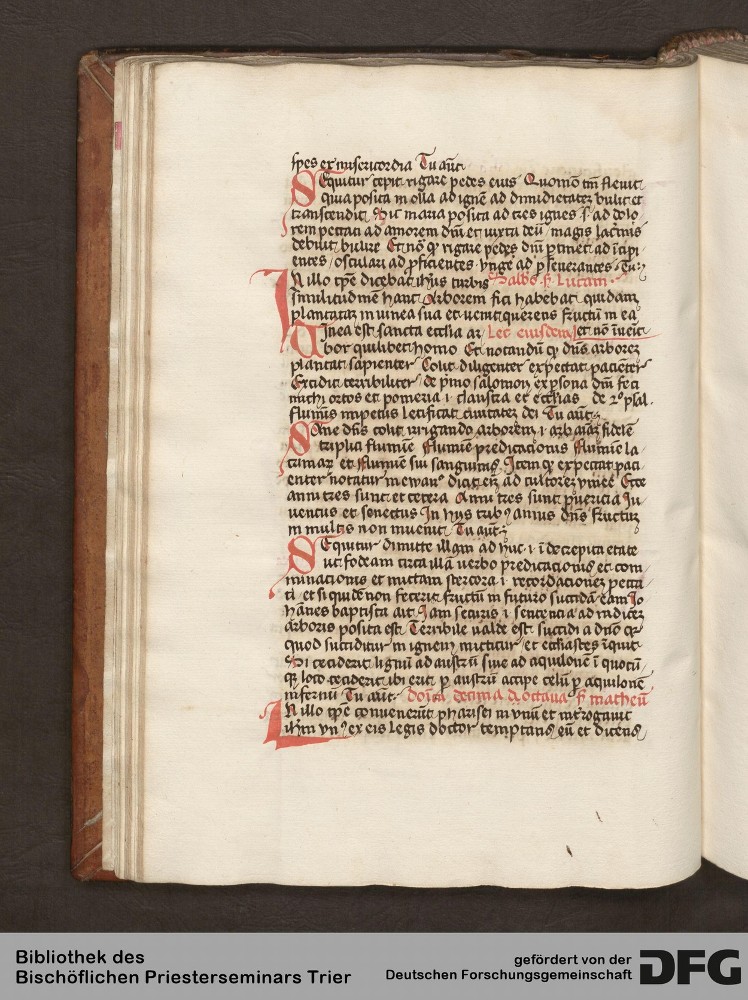 spes ex misericordia Tu aūt
Sequitur cepit rigare pedes eius Quomō tm̄ fleuit
quia posita in olla ad ignē ad dimidietatē bulit et
transcendit Sic maria posita ad tres ignes s̄ ad dolo
rem peccati ad amorem dm̄ et iuxta deū magis lacrimis
debuit bulire Et nō qͥ rigare pedes dm̄ ꝑtinet ad īcipi
entes / osculari ad ꝓficientes vnge ad ꝑseuerantes Tu
In illo tp̄e dicebat ihūs turbis Sabbō s̄ Lucam
similitudinē hanc Arborem fici habebat quidam
plantatam in vinea sua et venit querens fructū in ea
Vinea est sancta ecclīa ar Lec eiusdem et nō inuēit
bor quilibet homo Et notandū qꝫ dn̄s arborem
plantat sapienter Colit diligenter expectat pacienter
Excidit terribiliter de pͥmo salomon ex ꝑsona dm̄ feci
michi ortos et pomeria i claustra et ecclīas de 2º psal
fluminis impetus letificat ciuitatem dei Tu aūt
Sane dn̄s colit irrigando arborem i aīam fidelē
triplici flumine flumine predicacionis flumine la
crimarum et flumine sui sanguinis Item qꝫ expectat paci
enter notatur in ewanº dicitē ad cultorem vinee Ecce
anni tres sunt et cetera Anni tres sunt puericia Iu
uentus et senectus In hys tribꝫ annis dn̄s fructum
in multis non inuenit Tu aūt
Sequitur dimitte illam ad huc i ī decrepita etate
vt fodeam circa illā verbo predicacionis et com
minacionis et mittam stercora i recordacionem pecca
ti et si quidē non fecerit fructū in futuro succidā eam Io
hānes baptista ait Iam securis i sentencia ad radicem
arboris posita est Terribile valde est succidi a dn̄o qꝛ
quod succiditur in ignem mittitur et ecclīastes īquit
Si ceciderit lignū ad austrū siue ad aquilonē ī quocū
qꝫ loco ceciderit ibi erit ꝑ austrū accipe celū ꝑ aquilonē
infernū Tu aūt dom̄ca decima octaua s̄ matheū
In illo tp̄e conuenerūt pharisei in vnū et intrōgauit
ihm̄ vnꝰ ex eis legis doctor temptans eū et dicens
Bibliothek des
Bischöflichen Priesterseminars Trier
gefördert von der
Deutschen Forschungsgemeinschaft DFG